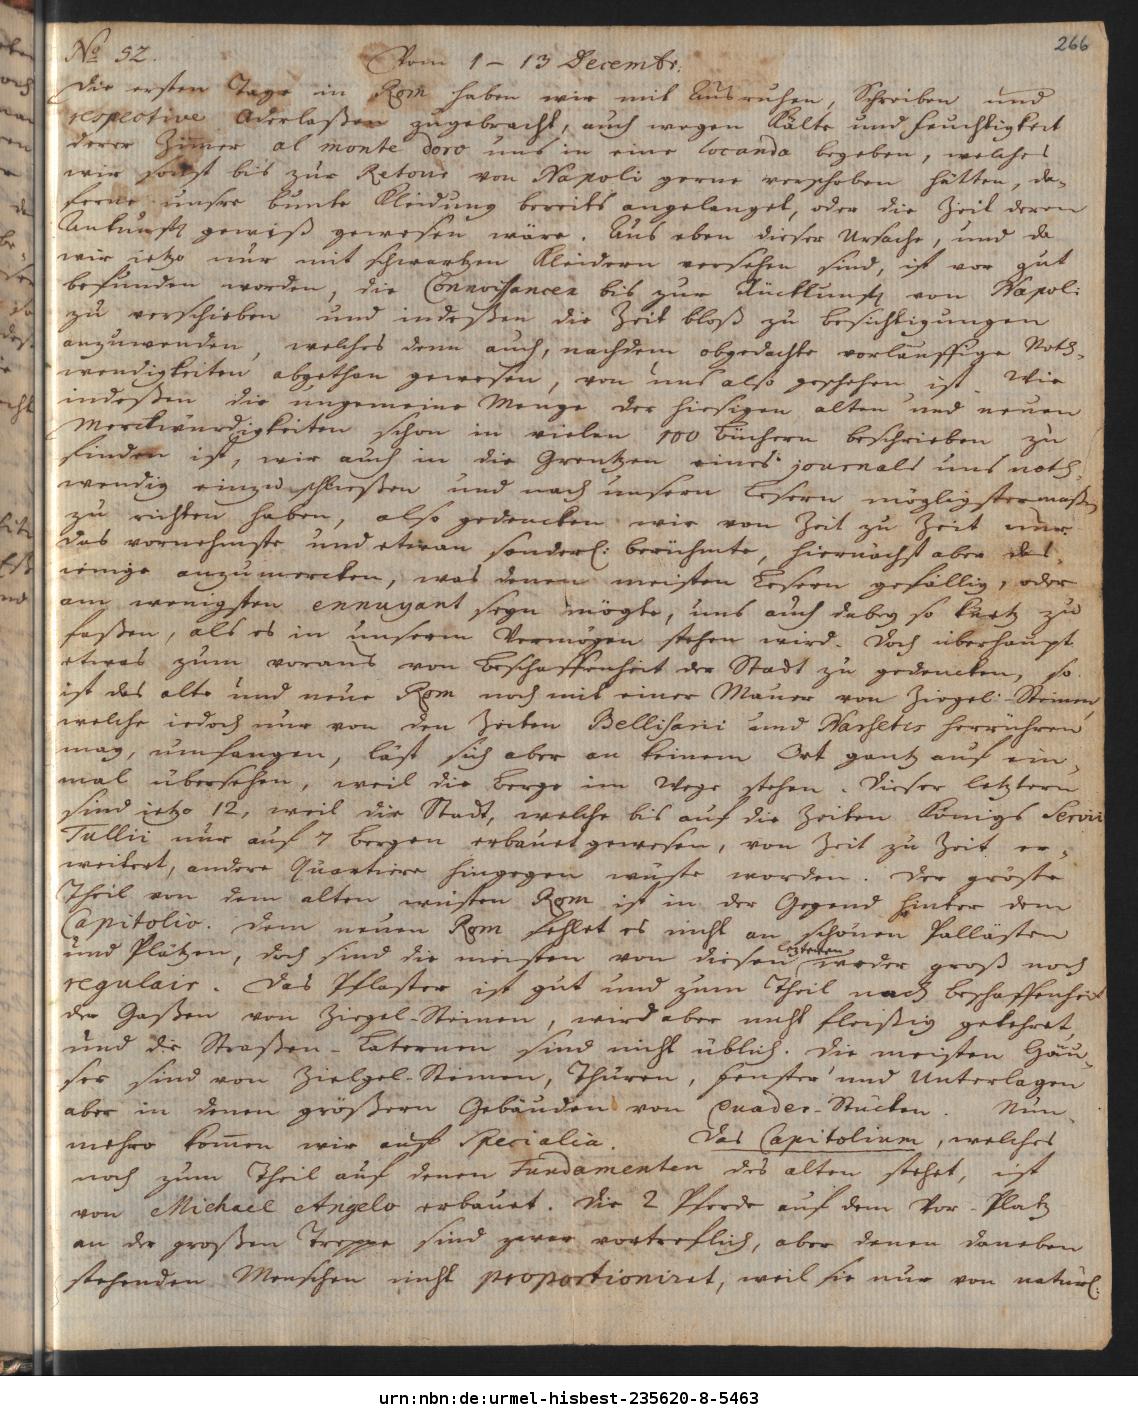 266
No 52. Vom 1 - 13 Decembr.
Die ersten Tage in Rom haben wir mit Ausruhen, Schreiben und
respective Aderlaßen zugebracht, auch wegen Kälte und Feuchtigkeit
derer Zimmer al monte doro uns in eine locanda begeben, welches
wir sonst bis zur Retour von Napoli gerne verschoben hätten, da-
ferne unsre bunte Kleidung bereits angelanget, oder die Zeit deren
Ankunfft gewiß gewesen wäre. Aus eben dieser Ursache, und da
wir ietzo nur mit schwartzen Kleidern versehen sind, ist vor gut
befunden worden, die Connoissancen bis zur Rückkunfft von Napoli
zu verschieben und indeßen die Zeit bloß zu Besichtigungen
anzuwenden, welches denn auch, nachdem obgedachte vorläuffige Noth-
wendigkeiten abgethan gewesen, von uns also geschehen ist. Wie
indeßen die ungemeine Menge der hiesigen alten und neuen
Merckwürdigkeiten schon in vielen 100 Büchern beschrieben zu
finden ist, wir auch in die Grentzen eines journals uns noth-
wendig einzuschließen und nach unsern Lesern möglichstermaßen
zu richten haben, also gedencken wir von Zeit zu Zeit nur
das vornehmste und etwan sonderl: berühmte, hiernächst aber das-
ienige anzumercken, was denen meisten Lesern gefällig, oder
am wenigsten ennuyant seyn mögte, uns auch dabey so kurtz zu
faßen, als es in unserm Vermögen stehen wird. Doch überhaupt
etwas zum voraus von Beschaffenheit der Stadt zu gedencken, so
ist das alte und neue Rom noch mit einer Mauer von Ziegel-Steinen,
welche iedoch nur von den Zeiten Bellisarii und Narsetis herrühren
mag, umfangen, läst sich aber an keinem Ort gantz auf ein-
mal übersehen, weil die Berge im Wege stehen. Dieser letztern
sind ietzo 12, weil die Stadt, welche bis auf die Zeiten Königs Servii
Tullii nur auf 7 Bergen erbauet gewesen, von Zeit zu Zeit er-
weitert, andere Quartiere hingegen wüste worden. Der gröste
Theil von dem alten wüsten Rom ist in der Gegend hinter dem
Capitolio. Dem neuen Rom fehlet es nicht an schönen Pallästen
und Plätzen, doch sind die meisten von diesen letztern weder groß noch
regulair. Das Pflaster ist gut und zum Theil nach Beschaffenheit
der Gaßen von Ziegel-Steinen, wird aber nicht fleißig gekehret,
und die Straßen-Laternen sind nicht üblich. Die meisten Häu-
ser sind von Zielgel-Steinen, Thüren, Fenster und Unterlagen
aber in denen größern Gebäuden von Quader-Stücken. Nun
mehro kommen wir auf Specialia. Das Capitolium, welches
noch zum Theil auf denen Fundamenten des alten stehet, ist
von Michael Angelo erbauet. Die 2 Pferde auf dem Vor-Platz
an der großen Treppe sind zwar vortreflich, aber denen daneben
stehenden Menschen nicht proportioniret, weil sie nur von natürl:
urn:nbn:de:urmel-hisbest-235620-8-5463